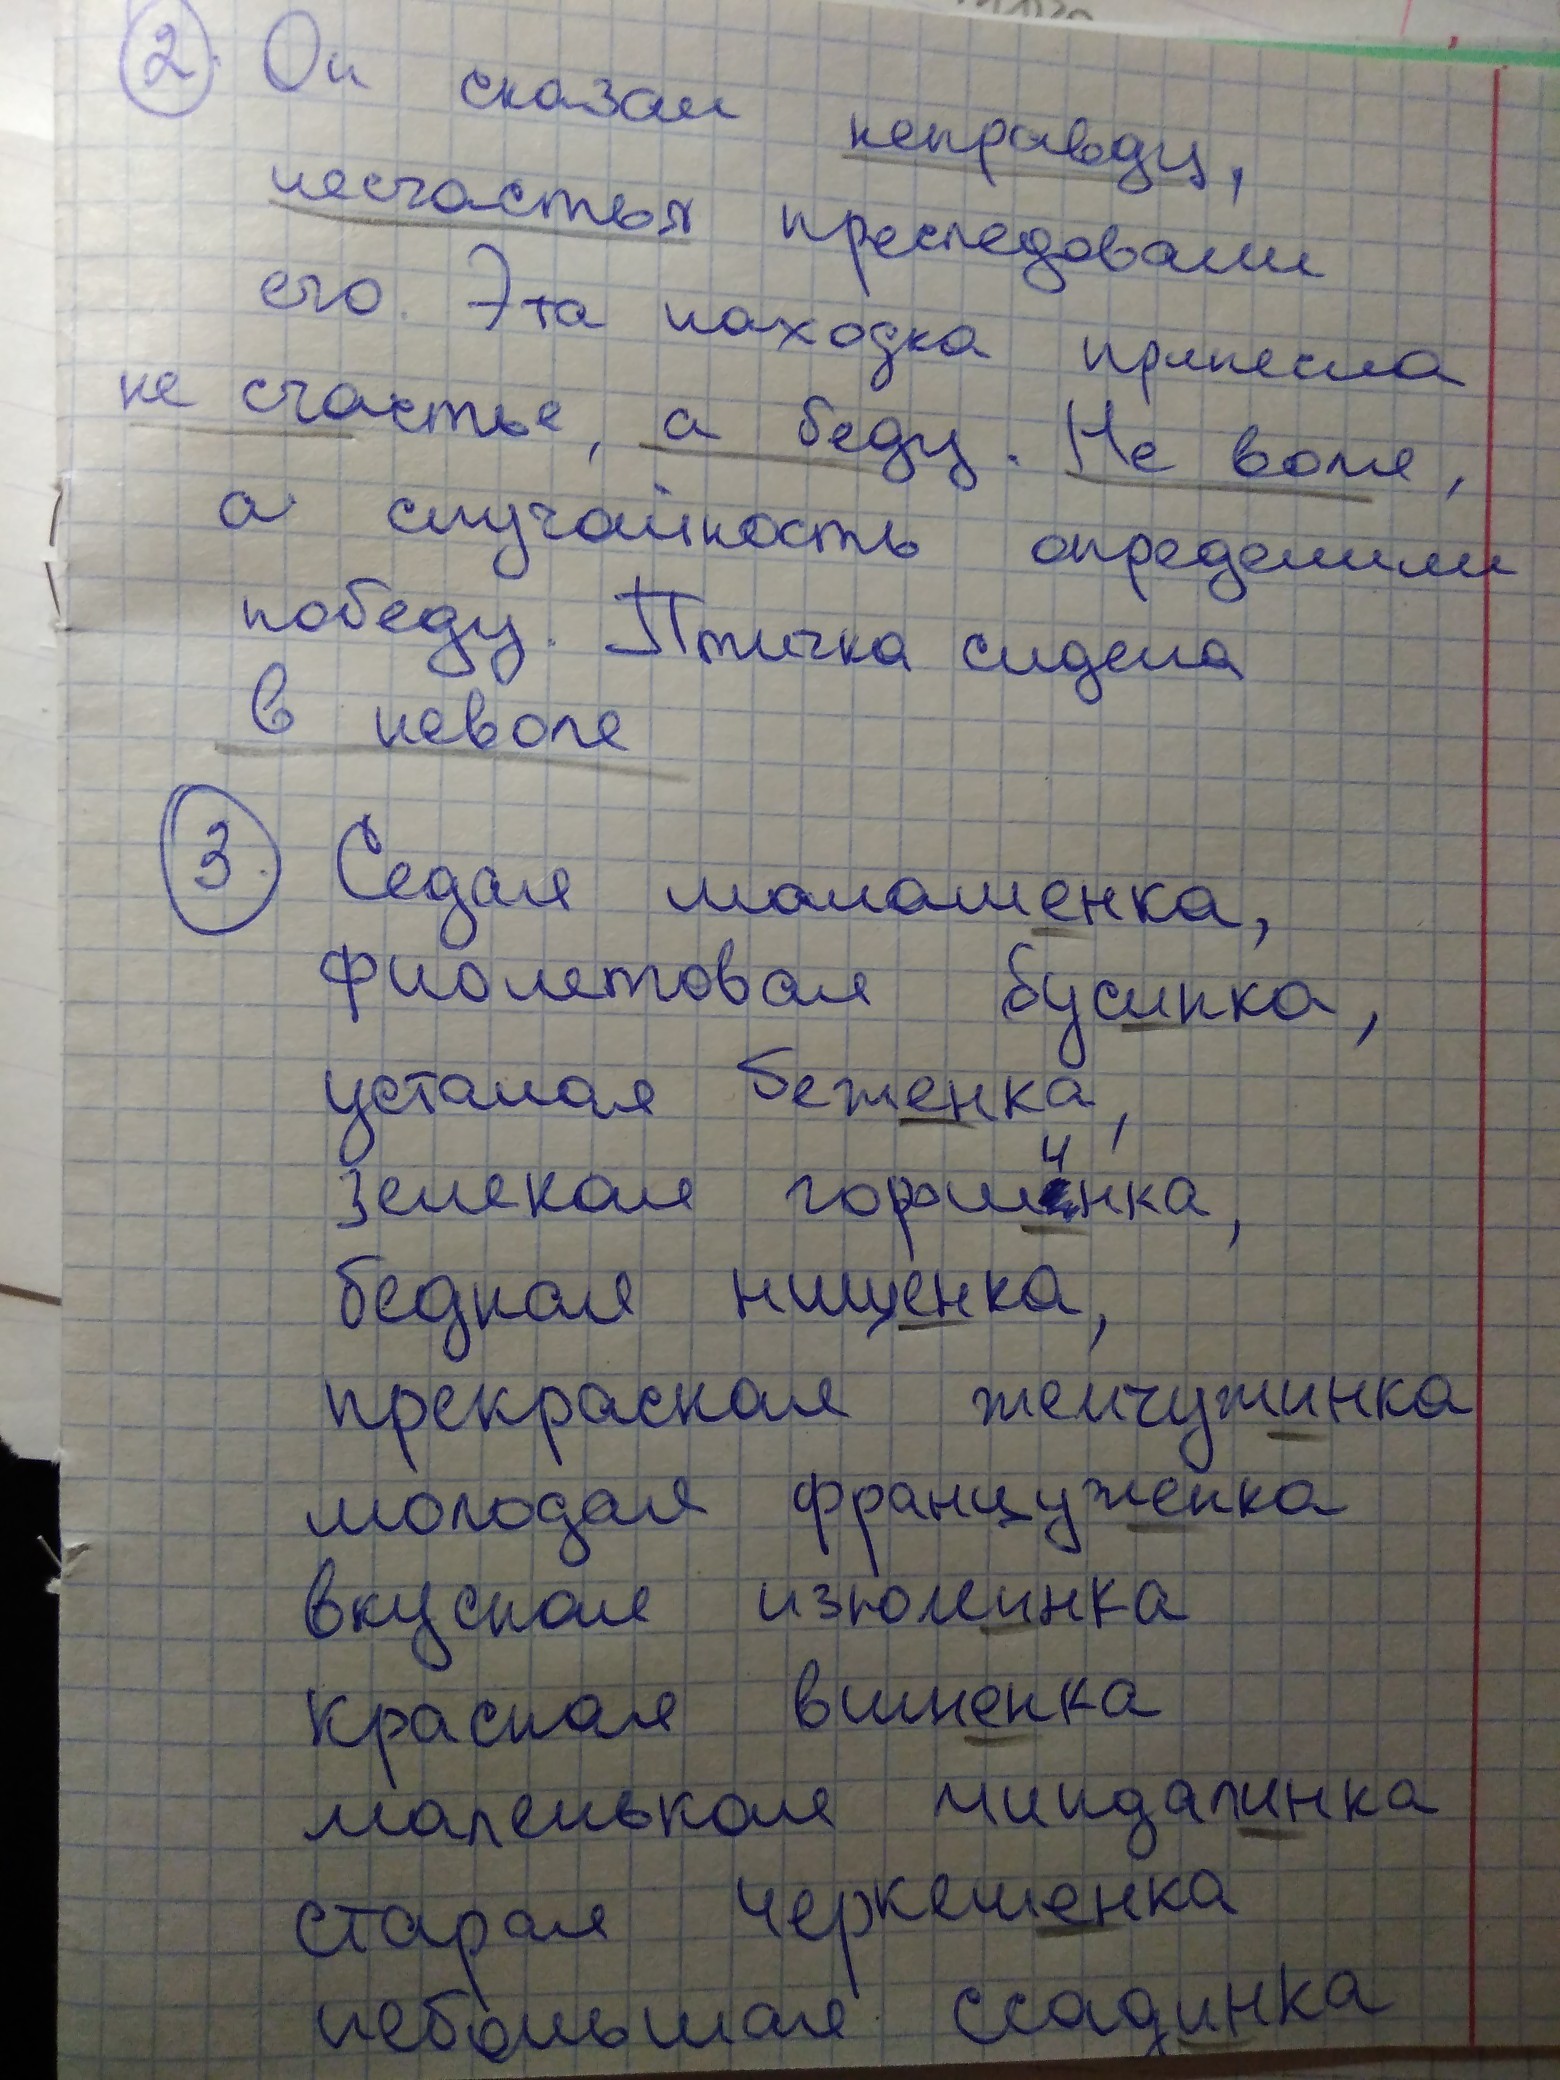 2. Он сказал неправду,
несчастья преследовали
его. Эта находка принесла
не счастье, а беду. Не воля,
а случайность определили
победу. Птичка сидела
в неволе
3. Седая монашенка,
фиолетовая бусинка,
усталая беженка,
зеленая горошинка,
бедная нищенка,
прекрасная жемчужинка
молодая француженка
вкусная изюминка
красная вишенка
маленькая миндалинка
старая черкешенка
небольшая ссадинка